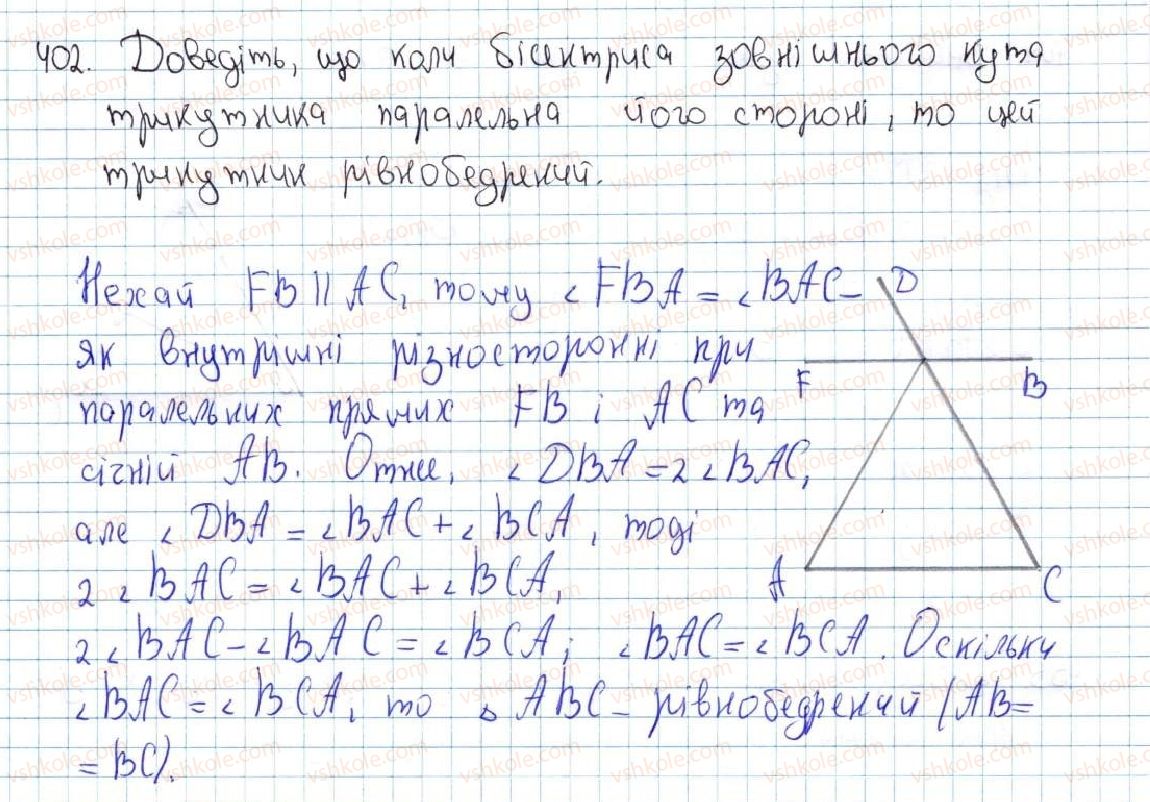 402. Доведіть, що коли бісектриса зовнішнього кута
трикутника паралельна його стороні, то цей
трикутник рівнобедрений.
Нехай FB || AC, тому ∠FBA = ∠BAC –
як внутрішні різносторонні при
паралельних прямих FB і AC та
січній AB. Отже, ∠DBA = 2∠BAC,
але ∠DBA = ∠BAC + ∠BCA, тоді
2∠BAC = ∠BAC + ∠BCA,
2∠BAC – ∠BAC = ∠BCA; ∠BAC = ∠BCA. Оскільки
∠BAC = ∠BCA, то △ABC – рівнобедрений (AB=
= BC).
D
F
B
A
C
vshkole.com